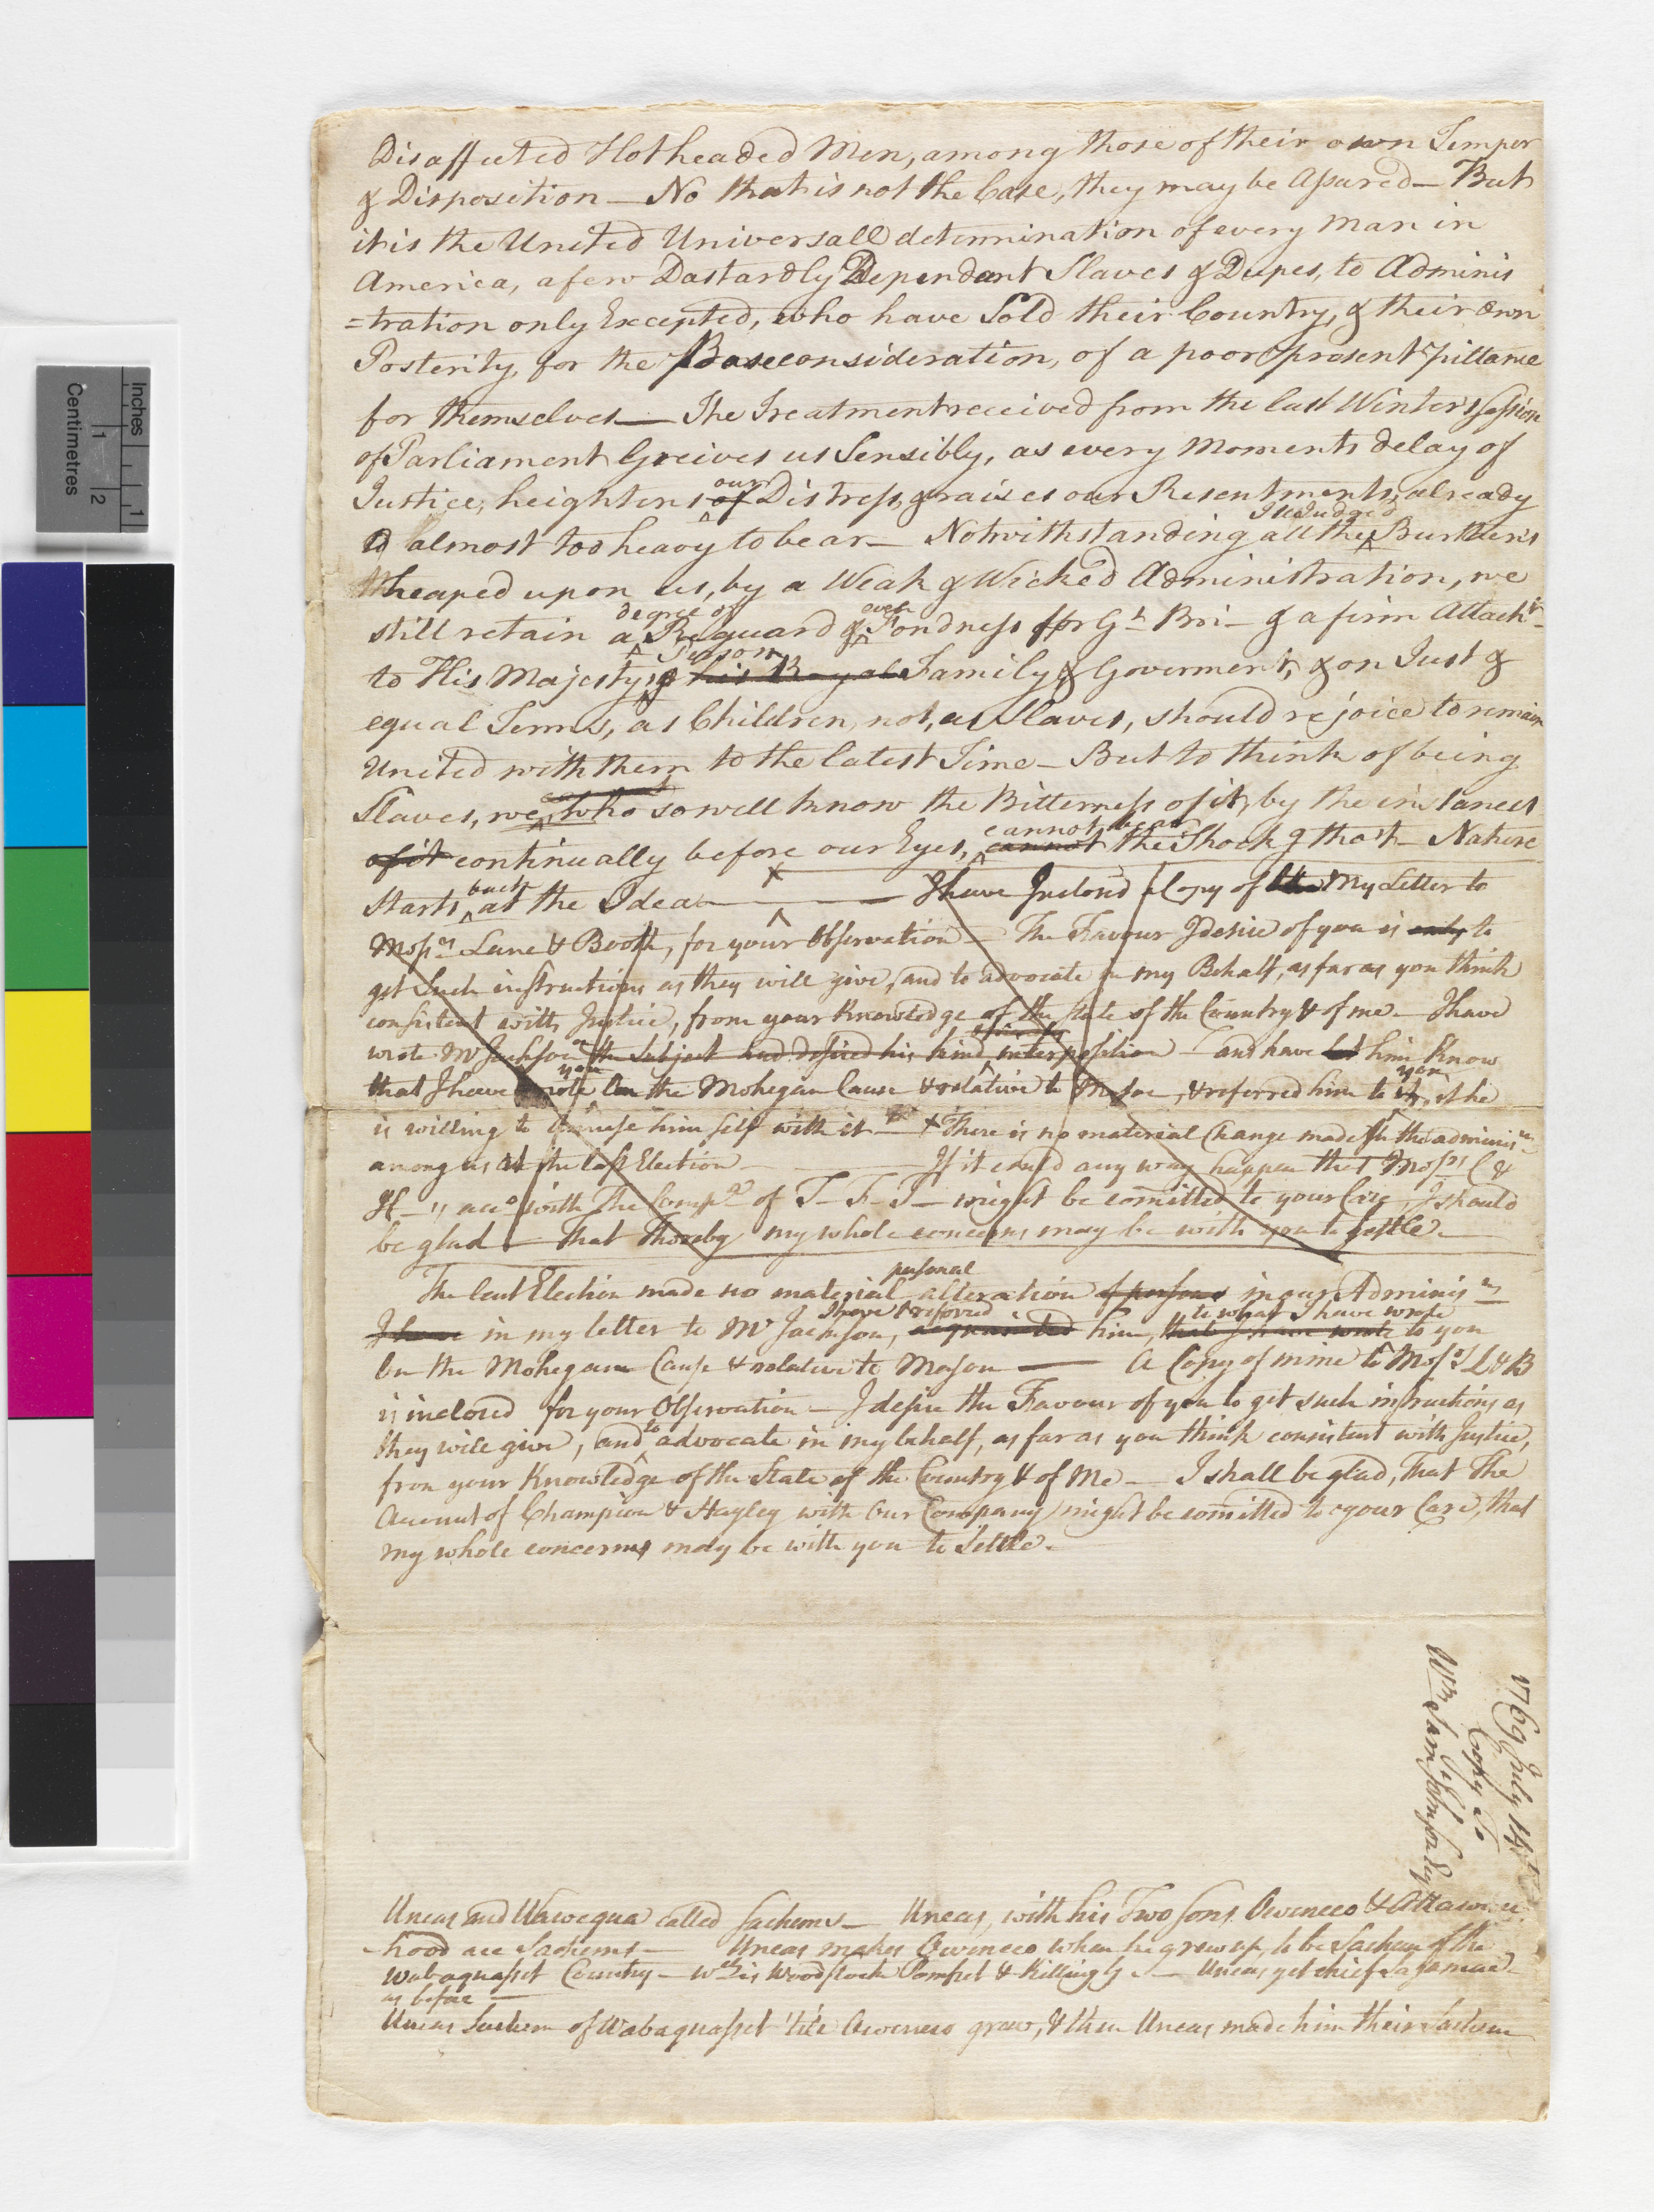 Disaffected Hotheaded Men, among those of their own Temper
& Disposition — No that is not the Case, they may be Assured — But
it is the United Universall determination of every Man in
America, a few Dastardly Dependant Slaves & Dupes, to Adminis
=tration only Excepted, who have Sold their Country, & their own
Posterity, for the Base consideration, of a poor present pittance
for themselves — The Treatment received from the last Winters session
of Parliament Greives us Sensibly, as every Moments delay of
our
Justice, heightens of Distress, & raises our Resentments, already
Ill Judged
almost too heavy to bear — Notwithstanding all the Burthens
heaped upon us, by a Weak & Wicked Administration, we
degree of even
still retain a Reguard & Fondness for Gt Bri— & a firm Attacht
Person
to His Majestys & his Royal Family & Goverment, & on Just &
equal Terms, as Children, not, as Slaves, should rejoice to remain
United with them to the latest Time — But to think of being
Slaves, we who so well know the Bitterness of it, by the instances
cannot bear
of it continually before our Eyes, cannot the Shock of that — Nature
back
Starts at the Idea — I have Inclosd Copy of My Letter to
Messrs Lane & Booth, for your Observation — The Favour I desire of you is only to
get Such instructions as they will give, and to advocate in my Behalf, as far as you think
consistent with Justice, from your Knowledge of the State of the Country & of me — I have
wrote Mr Jackson on the Subject and desired his kind interposition — and have let him know
you you
that I have wrote on the Mohegan Cause & relative to Mason, & referred him to it, if he
is willing to Amuse him self with it — + There is no material Change made in the adminisn
among us at the last Election — If it could any way happen that Messrs C &
H—'s acco with the Compa of T— F— T— might be comitted to your Care I should
be glad — that thereby my whole concerns may be with you to settle —
personal
The last Election made no material alteration of persons in our Adminisn
I have referred to what I have wrote
I have in my letter to Mr Jackson, acquainted him, that I have wrote to you
on the Mohegan Cause & relative to Mason — A Copy of mine to Messrs L & B
is inclosed for your Observation — I desire the Favour of you to get such instructions as
they will give, and to advocate in my behalf, as far as you think consistent with Justice,
from your Knowledge of the State of the Country & of Me — I shall be glad, that The
Account of Champion & Hayley with Our Company might be comitted to your Care, that
my whole concerns may be with you to Settle.
1769 July 14
Copy To
Wm Saml Johnson Esqr
Uncas and Wawequa called Sachems — Uncas, with his Two sons Oweneco & Attawan
=hood are Sachems — Uncas makes Oweneco when he grew up, to be Sachem of the
Wabaquasset Country — wch is Woodstock Pomfret & Killingly — Uncas yet chief Sagamore
as before —
Uncas Sachem of Wabaquasset 'till Oweneco grew, & then Uncas made him their Sachem